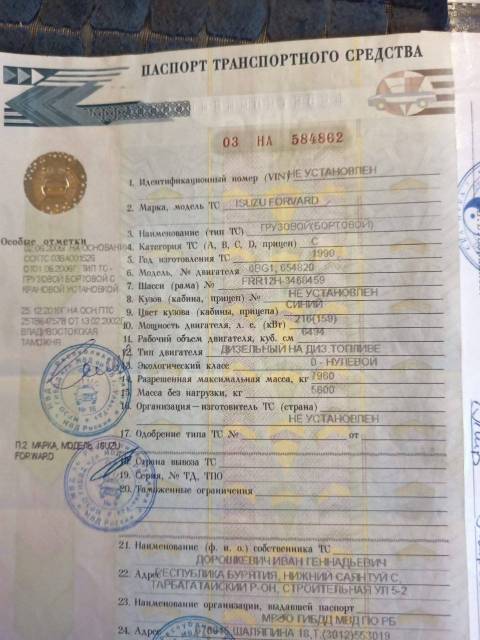 ПАСПОРТ ТРАНСПОРТНОГО СРЕДСТВА
03 НА 584862
1. Идентификационный номер (VIN) НЕ УСТАНОВЛЕН
2. Марка, модель ТС ISUZU FORVARD
3. Наименование (тип ТС) ГРУЗОВОЙ(БОРТОВОЙ)
4. Категория ТС (А, В, С, D, прицеп) С
5. Год изготовления ТС 1990
6. Модель, № двигателя 6BG1, 654820
7. Шасси (рама) № FRR12H-3460459
8. Кузов (кабина, прицеп) № НЕ УСТАНОВЛЕН
9. Цвет кузова (кабины, прицепа) СИНИЙ
10. Мощность двигателя, л. с. (кВт) 216(159)
11. Рабочий объем двигателя, куб. см 6494
12. Тип двигателя ДИЗЕЛЬНЫЙ НА ДИЗ.ТОПЛИВЕ
13. Экологический класс 0 - НУЛЕВОЙ
14. Разрешенная максимальная масса, кг 7960
15. Масса без нагрузки, кг 5600
16. Организация–изготовитель ТС (страна)
НЕ УСТАНОВЛЕН
17. Одобрение типа ТС № от
18. Страна вывоза ТС
19. Серия, № ТД, ТПО
20. Таможенные ограничения
21. Наименование (ф. и. о.) собственника ТС
ДОРОШКЕВИЧ ИВАН ГЕННАДЬЕВИЧ
22. Адрес РЕСПУБЛИКА БУРЯТИЯ, НИЖНИЙ САЯНТУЙ С,
ТАРБАГАТАЙСКИЙ Р-ОН, СТРОИТЕЛЬНАЯ УЛ 5-2
23. Наименование организации, выдавшей паспорт
МРЭО ГИБДД МВД ПО РБ
24. Адрес 670045 ШАЛЯПИНА 18,Т.(3012)553019
Особые отметки
02.06.2006Г НА ОСНОВАНИИ
ТИП ТС -
ГРУЗОВОЙ БОРТОВОЙ С
КРАНОВОЙ УСТАНОВКОЙ
НА ОСН.ПТС
ОТ 13.02.2002
ВЛАДИВОСТОКСКАЯ
ТАМОЖНЯ
П.2 МАРКА, МОДЕЛЬ: ISUZU
FORWARD